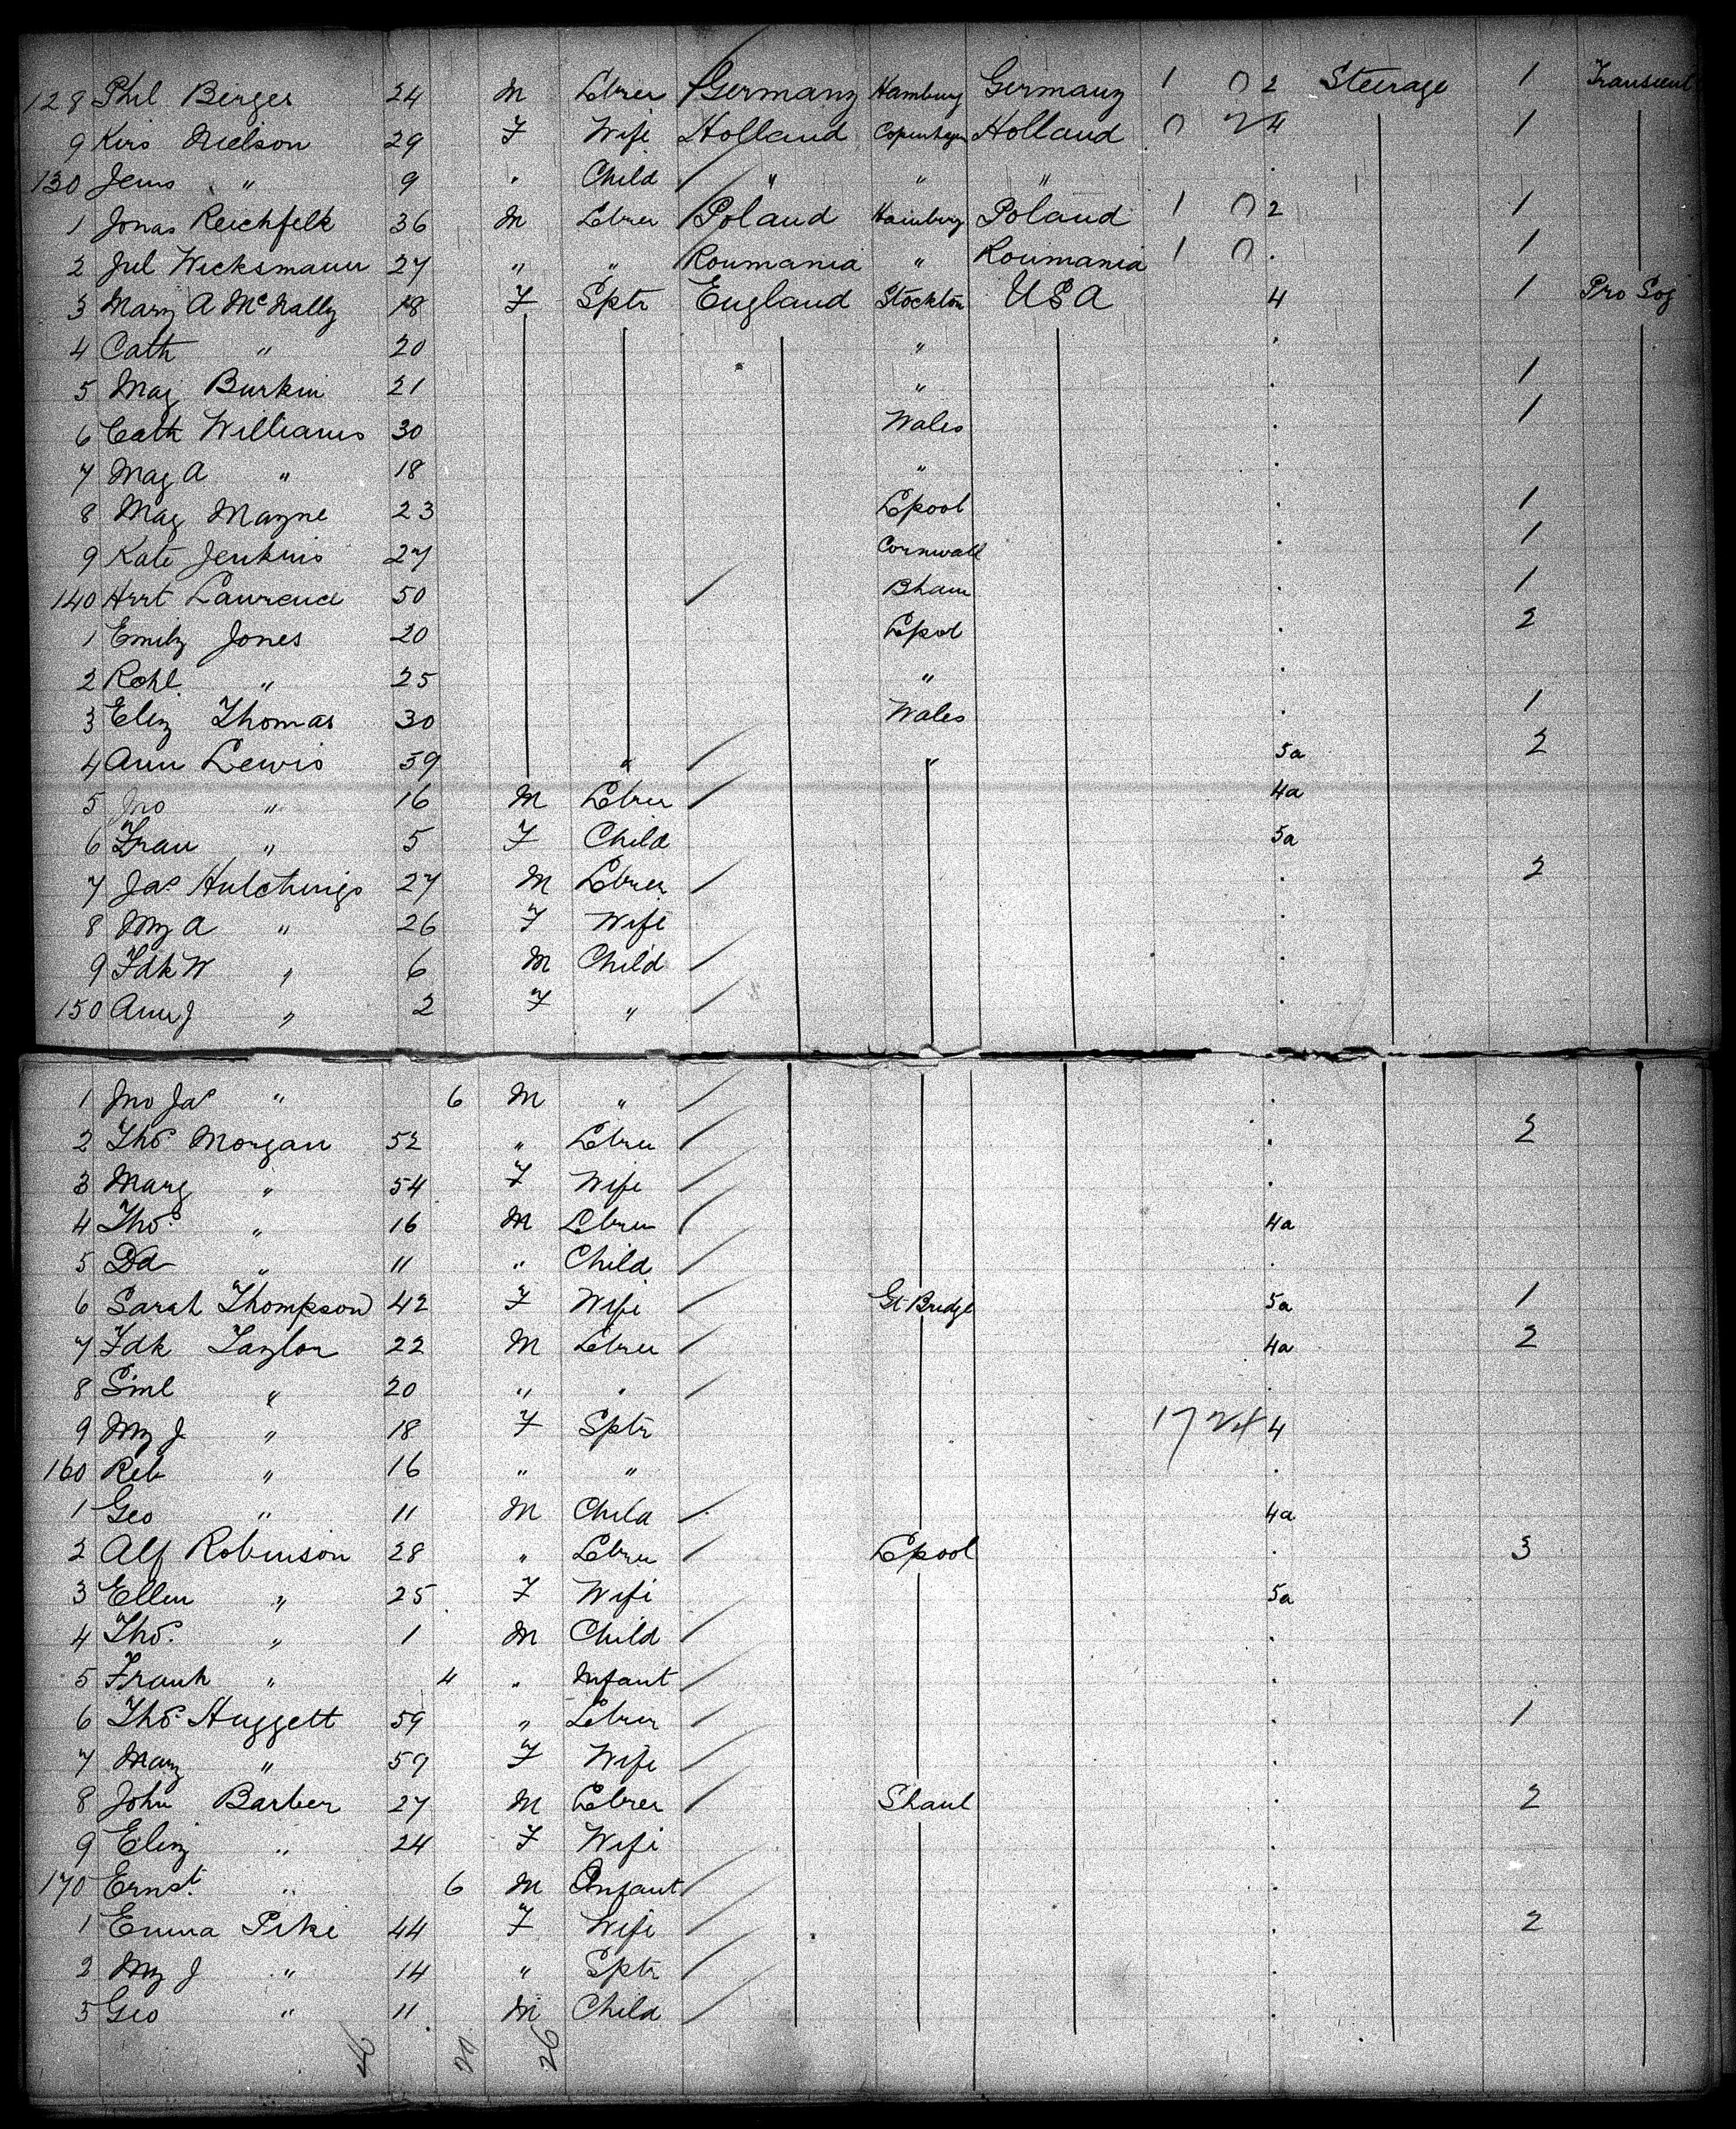 128 Phil Berger 24 M Lbrer Germany Hamburg Germany 1 0 2 Steerage 1 Transient
9 Kirs Nielson 29 F Wife Holland Copenhagen Holland 0 4 1
130 Jens " 9 " Child " " "
1 Jonas Reichfelt 36 M Lbrer Poland Hamburg Poland 1 0 2 1
2 Jul Wicksmann 27 " " Roumania " Roumania 1 0 . 1
3 Mary A McNally 18 F Sptr England Stockton USA 4 1 Pro Soj
4 Cath " 20 " .
5 Mag Burkin 21 " . 1
6 Cath Williams 30 Wales . 1
7 Mag A " 18 " .
8 Mag Mayne 23 Lpool . 1
9 Kate Jenkins 27 Cornwall . 1
140 Hrrt Laurence 50 Bham . 1
1 Emily Jones 20 Lpol . 2
2 Rchl " 25 " .
3 Eliz Thomas 30 Wales . 1
4 Ann Lewis 59 " " 5a 2
5 Jno " 16 M Lbrer 4a
6 Fran " 5 F Child 5a
7 Jas Hutchings 27 M Lbrer . 2
8 My A " 26 F Wife .
9 Fdk W " 6 M Child .
150 Ann J " 2 F " .
1 Jno Jas " 6 M " .
2 Thos Morgan 52 " Lbrer . 2
3 Marg " 54 F Wife .
4 Thos " 16 M Lbrer 4a
5 Dd " 11 " Child .
6 Sarah Thompson 42 F Wife Gt Bridge 5a 1
7 Fdk Taylor 22 M Lbrer 4a 2
8 Sml " 20 " " .
9 My J " 18 F Sptr 17 4
160 Reb " 16 " " .
1 Geo " 11 M Child 4a
2 Alf Robinson 28 " Lbrer Lpool . 3
3 Ellen " 25 F Wife 5a
4 Thos " 1 M Child .
5 Frank " 4 " Infant .
6 Thos Huggett 59 " Lbrer . 1
7 Mary " 59 F Wife .
8 John Barber 27 M Lbrer . 2
9 Eliz " 24 F Wife .
170 Ernst " 6 M Infant .
1 Emma Pike 44 F Wife . 2
2 My J " 14 " Sptr .
3 Geo " 11 M Child .
26